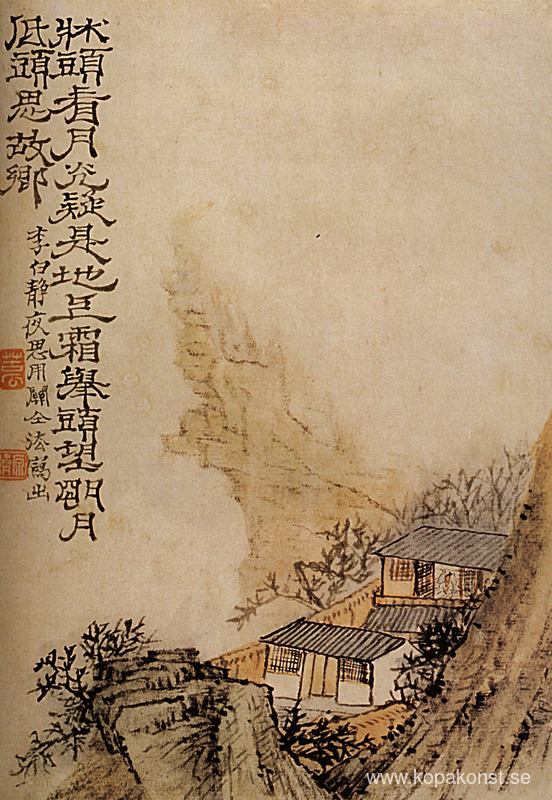 牀頭看月光疑是地上霜舉頭望朙月
低頭思故鄉
李白靜夜思用關仝法寫出
www.kopakonst.se